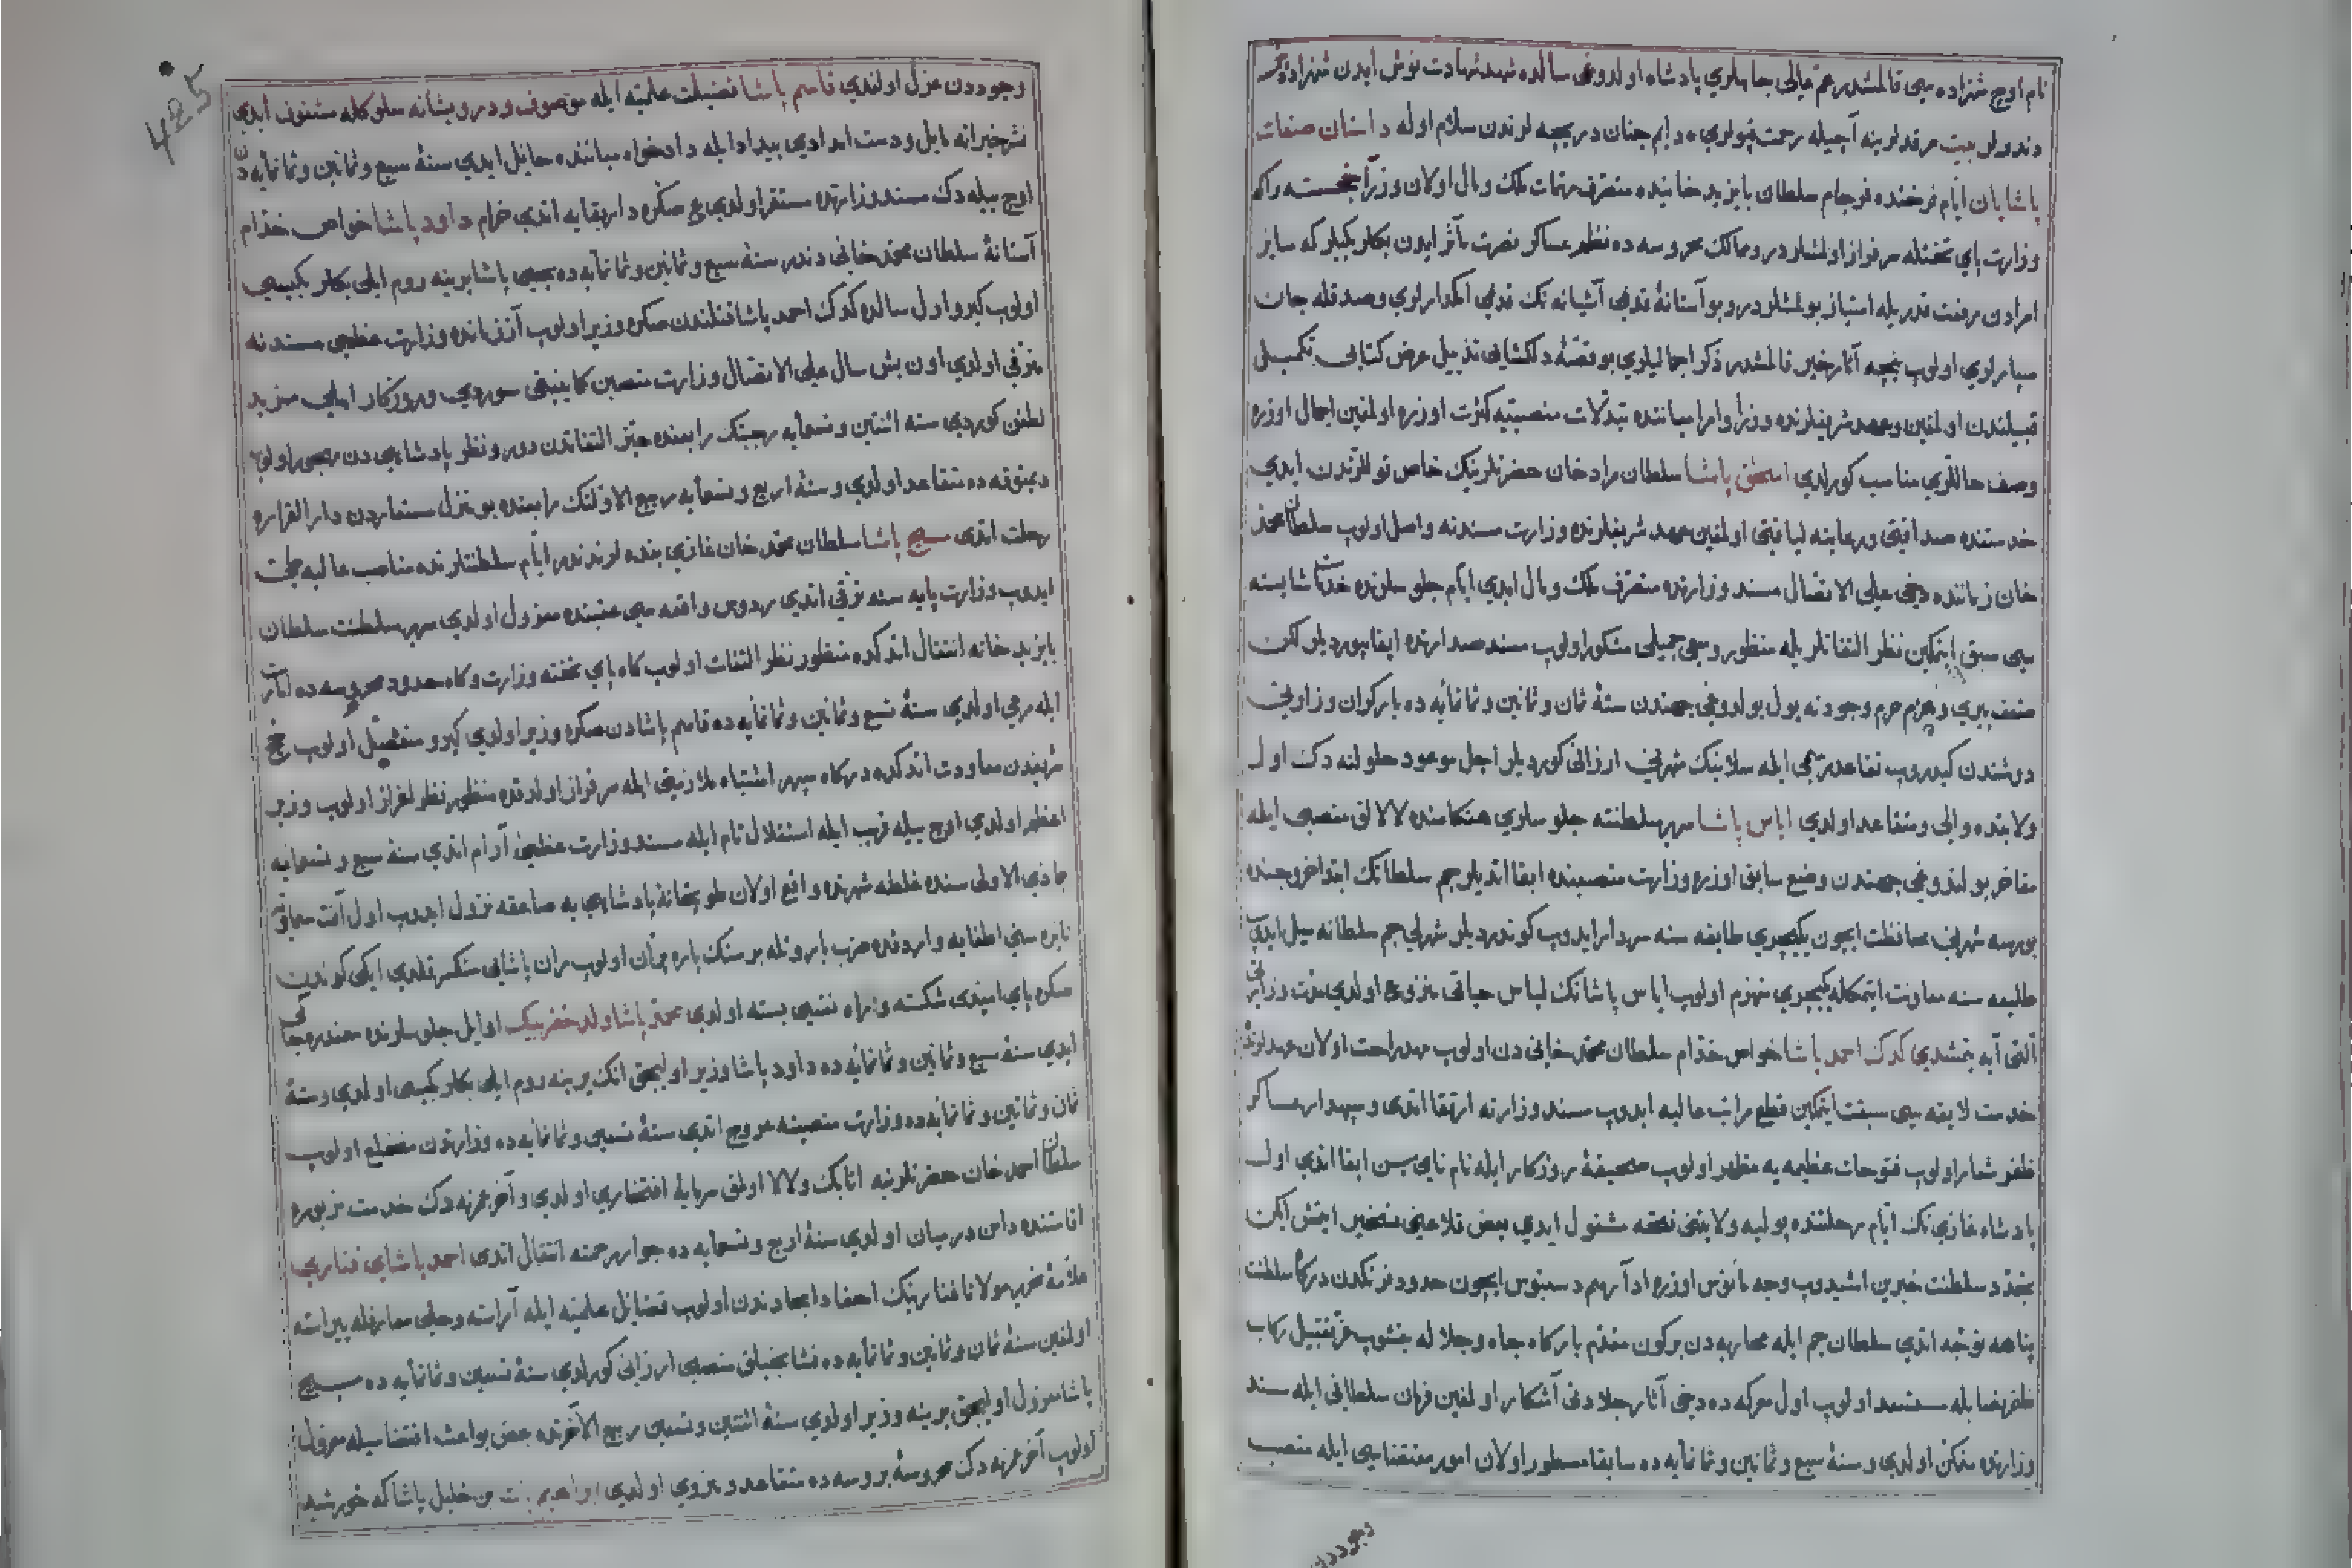 نام اوچ شهزاده سی قالمشدر عم عالی جاهلري پادشاه اولدوغی سالده شهد شهادت نوش ایدن شهزاده لر
دندورلر بیت مرقدلرینه آچیله رحمت قپولري ٥ دایم جنان دریچه لرندن سلام اوله داستان صفات
پاشایان ایام فرخنده فرجام سلطان بایزید خانیده متصرف مهمات ملک ومال اولان وزرآ خجسته راکه
وزارت پاي تختله سرفراز اولمشلردر وممالک محروسه ده نظم عساکر نصرت مآثر ایدن بکلربکیلر که سایر
امرادن رفعت قدریله امتیاز بولمشلردر وبو آستانهٔ قدیم آشیانه نک قدیم امکدارلري وصدقله جان
سپارلري اولوب نیجه آثار خیر قالمشدر ذکر اجمالیلري بو قصهٔ دلکشایی تذییل عرض کتابی تکمیل
قبیلندن اولمغین وعهد شریفلرنده وزرا وامرا میاننده تبدلات منصبیه کثرت اوزره اولمغین اجمال اوزره
وصف حاللري مناسب کورلدي اسحق پاشا سلطان مراد خان حضرتلرینک خاص قوللرندن ایدي
خدمتنده صداقتی ورعایته لیاقتی اولمغین عهد شریفلرنده وزارت مسندنه واصل اولوب سلطان محمد
خان زماننده دخی علی الاتصال مسند وزارتده متصرف ملک ومال ایدي ایام جلوسلرنده خدمات شایسته
سی سبق ایتمکین نظر التفاتلریله منظور وسعی جمیلی مشکور اولوب مسند صدارتده ابقا بیوردیلر لکن
ضعف پیري وهرم حرم وجودنه یول بولدوغی جهتدن سنهٔ ثمان وثمانین وثمانمایه ده بارکران وزارتی
دوشندن کیدروب تقاعد رسمی ایله سلانیک شهرنی ارزانی کوردیلر اجل موعود حلولنه دک اول
ولایتده والی ومتقاعد اولدي ایاس پاشا سپهر سلطنته جلوسلري هنکامنده لالالق منصبی ایله
مفاخر بولندوغی جهتدن وضع سابق اوزره وزارت منصبنده ابقا اتدیلر جم سلطانک ابتدا خروجنده
بورسه شهرنی محافظت ایچون یکیچري طایفه سنه سردار ایدوب کوندردیلر شهرلی جم سلطانه میل ایدوب
طلیعه سنه معاونت ایتمکله یکیچري منهزم اولوب ایاس پاشانک لباس حیاتی منزوع اولدي مدت وزارتی
التی آیه یتمشدي کدک احمد پاشا خواص خدام سلطان محمد خانی دن اولوب مهد راحت اولان عهدلرنده
خدمت لایقه سی سبقت ایتمکین قطع مراتب عالیه ایدوب مسند وزارته ارتقا اتدي وسپهدار عساکر
ظفر شعار اولوب فتوحات عظیمه یه مظهر اولوب صحیفهٔ روزکار ایله نام نامی سن ابقا اتدي اول
پادشاه غازي نک ایام رحلتنده پولیه ولایتنی فتحه مشغول ایدي بعض قلاعنی تسخیر ایتمش ایکن
تجدد سلطنت خبرین اشیدوب وجه مأنوس اوزره ادآ رسم دستبوس ایچون حدود فرنکدن درکاه سلطنت
پناهه توجه اتدي سلطان جم ایله محاربه دن برکون مقدم بارکاه جاه وجلاله یتشوب عز تقبیل رکاب
ظفر نصابله مستسعد اولوب اول معرکه ده دخی آثار جلادتی آشکار اولمغین فرمان سلطانی ایله مسند
وزارتده متمکن اولدي وسنهٔ سبع وثمانین وثمانمایه ده سابقا مسطور اولان امور مقتضاسی ایله منصب
وجوددن
425
وجوددن عزل اولندي قاسم پاشا فضیلت علمیه ایله موصوف ودرویشانه سلوکله مشغوف ایدي
نشر خیرانه مایل ودست امدادي بیداد ایله دادخواه میاننده حائل ایدي سنهٔ سبع وثمانین وثمانمایه دن
اوچ ییله دک مسند وزارتده مستقر اولدي صکره دار بقایه اتدي خرام داود پاشا خواص خدام
آستانهٔ سلطان محمد خانی دندر سنهٔ سبع وثمانین وثمانمایه ده یحیی پاشا یرینه روم ایلی بکلربکیسی
اولوب کیرو اول سالده کدک احمد پاشا قتلندن صکره وزیر اولوب آز زمانده وزارت عظمی مسندنه
مترقی اولدي اون بش سال علی الاتصال وزارت منصبن کاینبغی سوردي وروزکار املی مزید
لطفن کوردي سنه اثنتین وتسعمایه رجبنک رابعنده حیز التفاتدن دور ونظر پادشاهی دن مهجور اولوب
دیمتوقه ده متقاعد اولدي وسنهٔ اربع وتسعمایه ربیع الاولنک رابعنده بو منزل مستعاردن دار القراره
رحلت اتدي مسیح پاشا سلطان محمد خان غازي بنده لرندندر ایام سلطنتلرنده مناصب عالیه
ایدوب وزارت پایه سنه ترقی اتدي ردوس واقعه سی عقبنده معزول اولدي سریر سلطنت سلطان
بایزید خانه انتقال اتدکده منظور نظر التفات اولوب کاه پاي تخته وزارت وکاه حدود محروسه ده امارت
ایله مرعی اولدي سنهٔ تسع وثمانین وثمانمایه ده قاسم پاشادن صکره وزیر اولدي کیرو منفصل اولوب حج
شریفدن معاودت اتدکده درکاه سپهر اشتباه ملازمتی ایله سرفراز اولدقده منظور نظر اعزاز اولوب وزیر
اعظم اولدي اوچ ییله قریب ایله استقلال تام ایله مسند وزارت عظمی آرام اتدي سنهٔ سبع وتسعمایه
جمادي الاولی سنده غلطه شهرنده واقع اولان طوپخانهٔ پادشاهی یه صاعقه نزول ایدوب اول آفت سماوي
نایره سنی اطفایه واردقده ضرب باروتله بر سنک پاره پران اولوب ران پاشایی منکسر قلدي ایکی کوندن
صکره پاي امیدي شکسته وراه نفسی بسته اولدي محمد پاشا ولد خضر بیک اوایل جلوسلرنده
ایدي سنهٔ سبع وثمانین وثمانمایه ده داود پاشا وزیر اولیجق انک یرینه روم ایلی بکلربکیسی اولدي وسنهٔ
ثمان وثمانین وثمانمایه ده وزارت منصبنه عروج اتدي سنهٔ تسعین وثمانمایه ده وزارتدن منخلع اولوب
سلطان احمد خان حضرتلرینه اتابک ولالا اولمق سرمایهٔ افتخاري اولدي وآخر عمرنه دک خدمت مزبوره
اقامتنده دامن درمیان اولدي سنهٔ اربع وتسعمایه ده جوار رحمته انتقال اتدي احمد پاشاي فناري
علامهٔ نحریر مولانا فنارینک احفاد امجادندن اولوب فضائل علمیه ایله آراسته وحلی معارفله پیراسته
اولمغین سنهٔ ثمان وثمانین وثمانمایه ده نشانجیلق منصبی ارزانی کورلدي سنهٔ تسعین وثمانمایه ده مسیح
پاشا معزول اولیجق یرینه وزیر اولدي سنهٔ اثنتین وتسعین ربیع الآخرنده بعض بواعث اقتضاسیله معزول
اولوب آخر عمرنه دک محروسهٔ بروسه ده متقاعد ومنزوي اولدي ابراهیم بن خلیل پاشا که خورشید